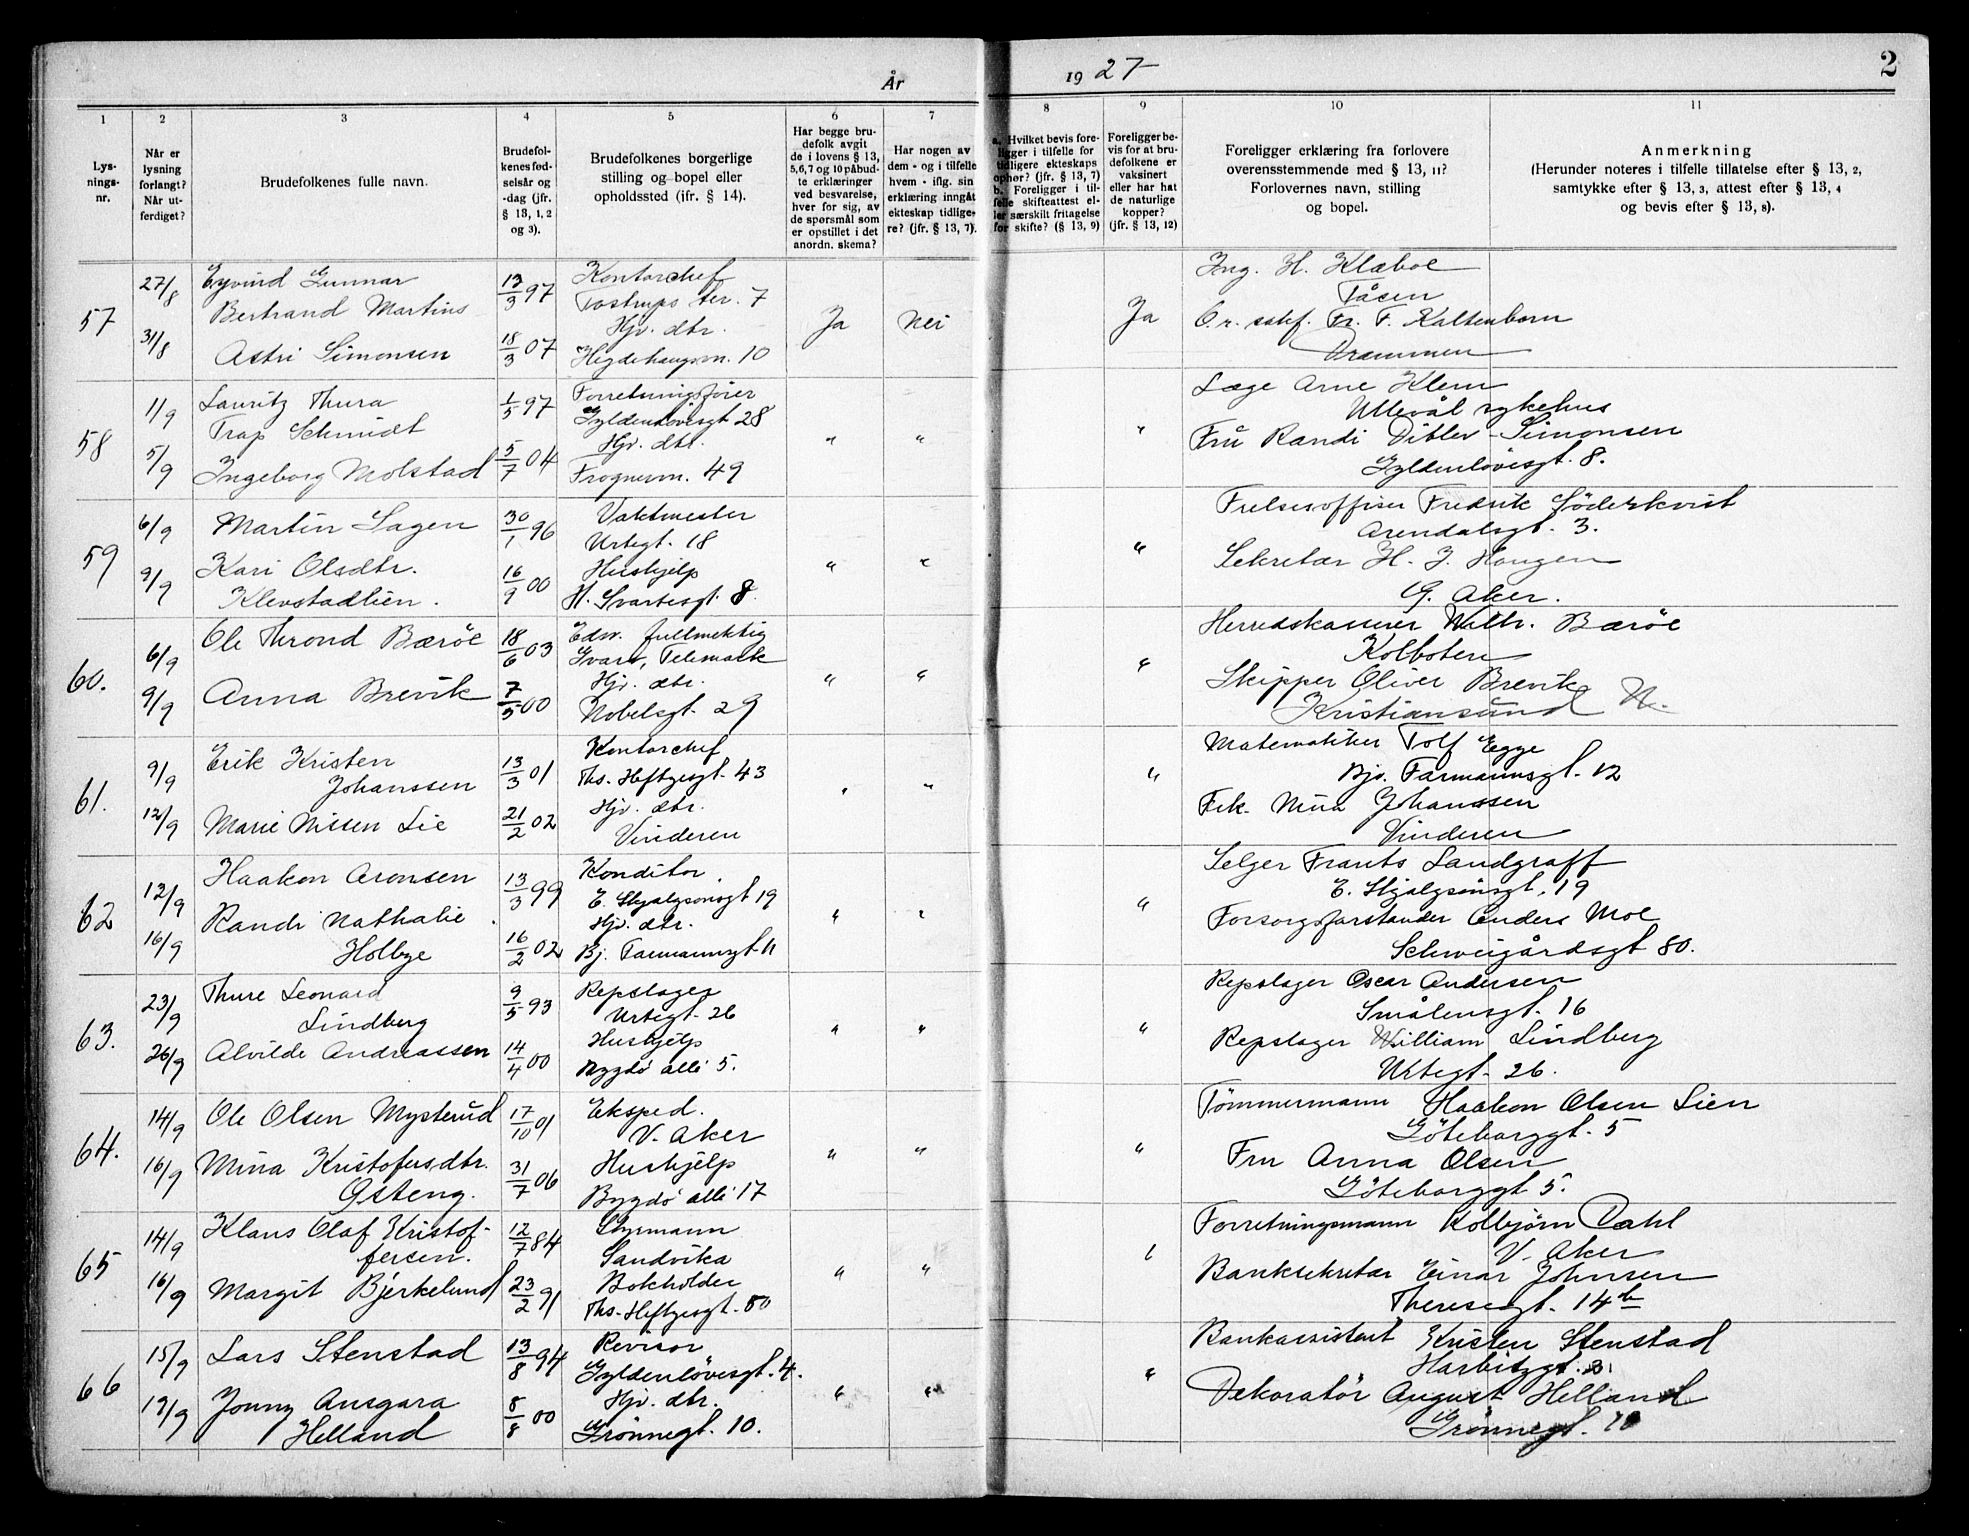 År 1927
2
1 2 3 4 5 6 7 8 9 10 11
Lys-
nings-
nr.
Når er
lysning
forlangt?
Når ut-
ferdiget?
Brudefolkenes fulle navn.
Brudefol-
kenes fød-
selsår og
-dag (jfr.
§ 13, 1, 2
og 3).
Brudefolkenes borgerlige
stilling og bopel eller
opholdssted (ifr. § 14).
Har begge bru-
defolk avgit
de i lovens § 13,
5,6,7 og 10 påbud-
te erklæringer
ved besvarelse,
hver for sig, av
de spørsmål som
er opstillet i det
anordn. skema?
Har nogen av
dem - og i tilfelle
hvem - iflg. sin
erklæring inngåt
ekteskap tidlige-
re? (jfr. § 13, 7).
a. Hvilket bevis fore-
ligger i tilfelle for
tidligere ekteskaps
ophør? (jfr. § 13, 7)
b. Foreligger i til-
felle skifteattest el-
ler særskilt fritagelse
for skifte? (§ 13, 9)
Foreligger be-
vis for at bru-
defolkene er
vaksinert
eller har hat
de naturlige
kopper?
(jfr. § 13, 12)
Foreligger erklæring fra forlovere
overensstemmende med § 13, 11?
Forlovernes navn, stilling
og bopel.
Anmerkning
(Herunder noteres i tilfelle tillatelse efter § 13, 2,
samtykke efter § 13, 3, attest efter § 13, 4
og bevis efter § 13, 8).
57
27/8
31/8
Eyvind Gunnar
Bertrand Martins
Astri Simonsen
13/3 97
18/3 07
Kontorchef
Tostrups ter. 7
Hjv. dtr.
Hegdehaugsvn. 10
Ja
Nei
Ja
Ing. H. Klæboe
Tåsen
O.r. sakf. Fr. F. Kaltenborn
Drammen
58
1/9
5/9
Lauritz Thura
Trap Schmidt
Ingeborg Molstad
1/5 97
5/7 04
Forretningsfører
Gyldenløvesgt 28
Hjv. dtr.
Frognervn. 49
" " "
Læge Arne Klem
Ullevål sykehus
Fru Randi Ditlev-Simonsen
Gyldenløvesgt. 8.
59
6/9
9/9
Martin Sagen
Kari Olsdtr.
Klevstadlien.
30/1 96
16/9 00
Vaktmester
Urtegt. 18
Hushjelp
H. Svartesgt. 8
" " "
Frelsesoffiser Fredrik Söderkvist
Arendalsgt. 3.
Sekretær H. J. Haugen
Ø. Aker.
60.
6/9
9/9
Ole Thrond Bærøe
Anna Brevik
18/6 03
7/5 00
Edsv. fullmektig
Gvarv, Telemark
Hjv. dtr.
Nobelsgt. 29
" " "
Herredskasserer Wilh. Bærøe
Kolboten
Skipper Oliver Brevik
Kristiansund N.
61.
9/9
12/9
Erik Kristen
Johanssen
Marie Nissen Lie
13/3 01
21/2 02
Kontorchef
Ths. Heftyesgt. 43
Hjv. dtr.
Vinderen
" " "
Matematiker Tolf Egge
Bjv. Farmannsgt. 12
Frk. Nina Johanssen
Vinderen
62
12/9
16/9
Haakon Aronsen
Randi Nathalie
Holbye
13/3 99
16/2 02
Konditor
E. Skjalgsonsgt 19
Hjv. dtr.
Bj. Farmannsgt 11
" " "
Selger Frants Landgraff
E. Skjalgsonsgt. 19
Forsorgsforstander Anders Moe
Schweigårdsgt 80.
63.
23/9
26/9
Thure Leonard
Lindberg
Alvilde Andreassen
9/5 93
14/4 00
Repslager
Urtegt. 26
Hushjelp
Bygdö alle 5.
" " "
Repslager Oscar Andersen
Smålensgt. 16
Repslager William Lindberg
Urtegt. 26.
64.
14/9
16/9
Ole Olsen Mysterud
Mina Kristofersdtr.
Østeng.
17/10 01
31/7 06
Eksped.
V. Aker
Hushjelp
Bygdö alle 17
" " "
Tömmermann Haakon Olsen Lien
Göteborggt. 5
Fru Anna Olsen
Göteborggt 5.
65
14/9
16/9
Klaus Olaf Kristof-
fersen.
Margit Bjerkelund
12/7 84
23/2 91
Styrmann
Sandvika
Bokholder
Ths. Heftyesgt. 50
" " "
Forretningsmann Kolbjörn Dahl
V. Aker
Banksekretær Einar Johnsen
Theresegt. 14b
66
15/9
19/9
Lars Stenstad
Jonny Ansgara
Helland
13/8 94
8/8 00
Revisor
Gyldenlövesgt. 4.
Hjv. dtr.
Grönnegt. 10.
" " "
Bankassistent Kristen Stenstad
Harbitzgt.
Dekoratör August Helland
Grönnegt. 10